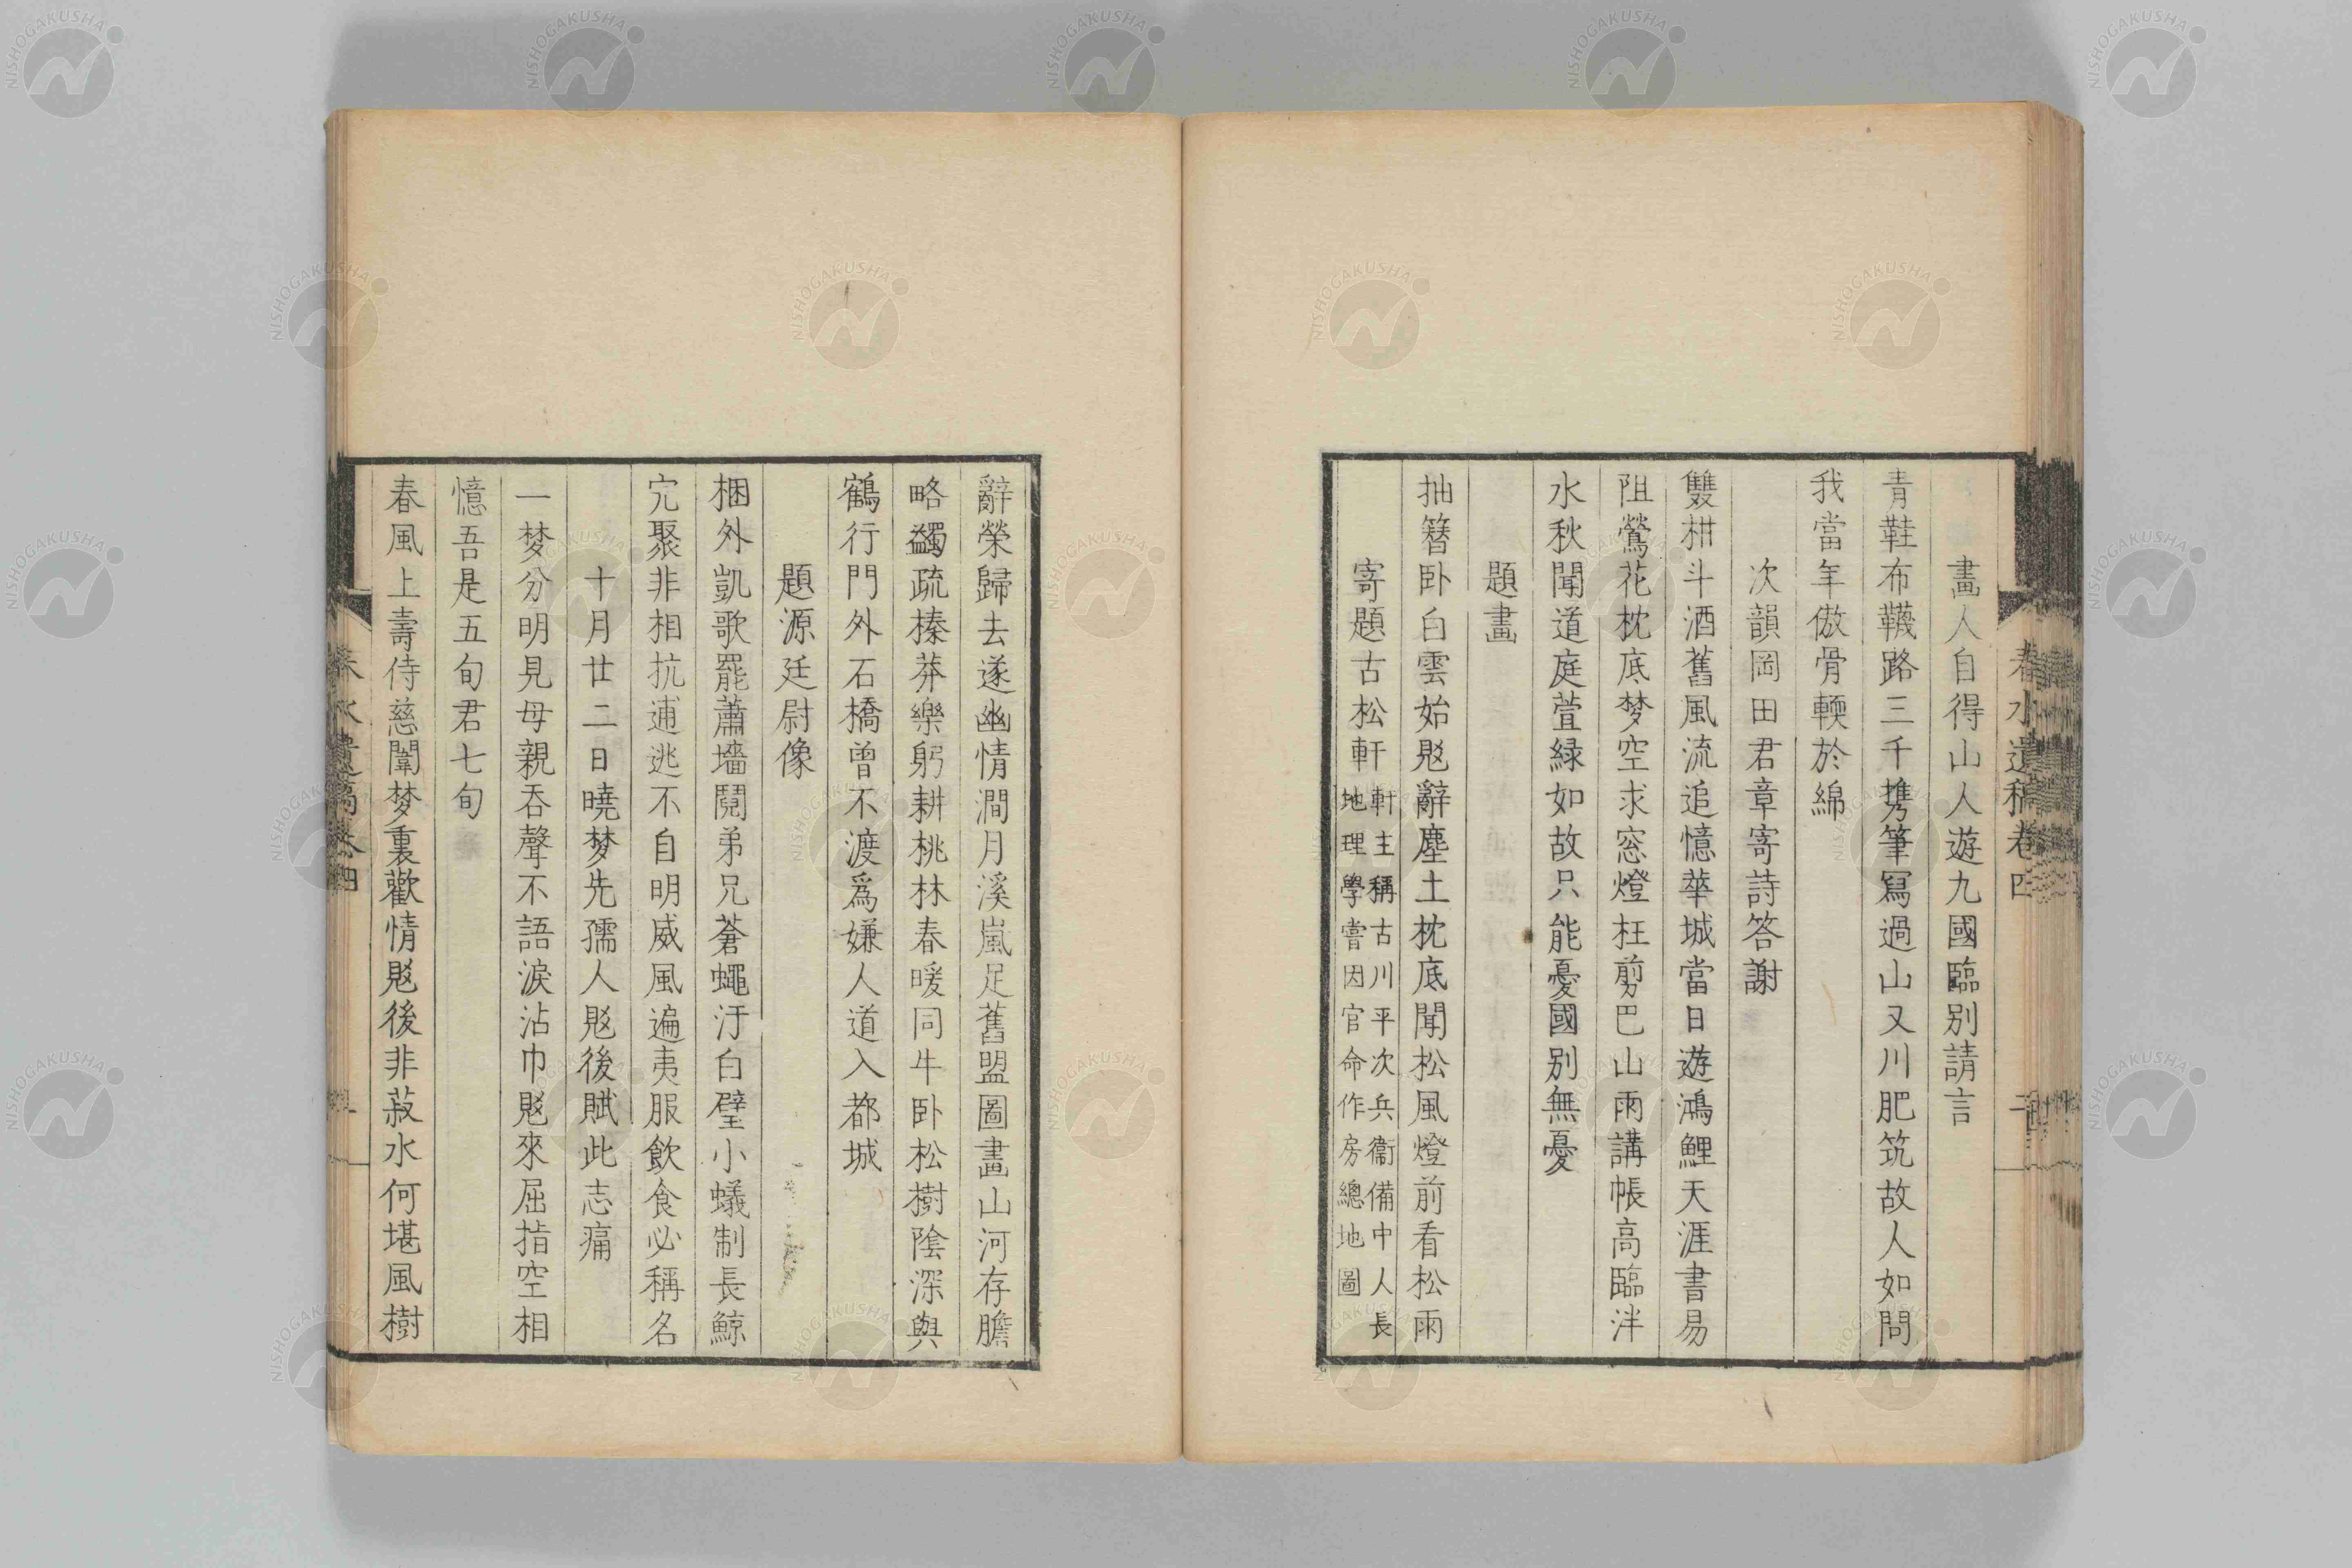 春水遺稿卷四
畫人自得山人遊九國臨別請言
青鞋布韈路三千携筆冩過山又川肥筑故人如問
我當年傲骨輭於綿
次韻岡田君章寄詩答謝
雙柑斗酒舊風流追憶華城當日遊鴻鯉天涯書易
阻鶯花枕底梦空求窓燈枉剪巴山雨講帳高臨泮
水秋聞道庭萱緑如故只能憂國別無憂
題畫
抽簪卧白雲始覐辭塵土枕底聞松風燈前看松雨
寄題古松軒
軒主稱古川平次兵衞備中人長
地理學嘗因官命作房總地圖
辭榮歸去遂幽情澗月溪嵐足舊盟圖畫山河存膽
略蠲疏榛莽樂躬耕桃林春暖同牛卧松樹陰深與
鶴行門外石橋曾不渡爲嫌人道入都城
題源廷尉像
梱外凱歌罷蕭墻鬩弟兄蒼蠅汙白璧小蟻制長鯨
宂聚非相抗逋逃不自明威風遍夷服飲食必稱名
十月廿二日曉梦先孺人覐後賦此志痛
一梦分明見母親吞聲不語淚沾巾覐來屈指空相
憶吾是五旬君七旬
春風上壽侍慈闈梦裏歡情覐後非菽水何堪風樹
春水遺稿卷四